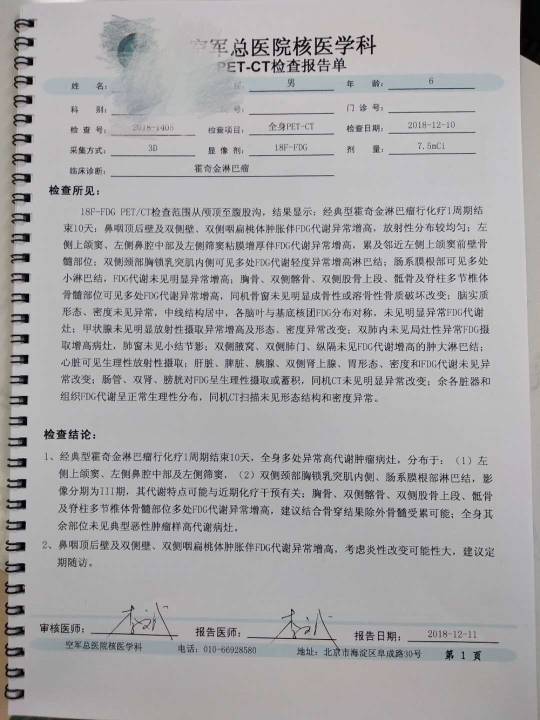 空军总医院核医学科
PET-CT检查报告单
姓 名： 男 年 龄： 6
科 别： 号： 门 诊 号：
检 查 号： 2018-1408 检查项目： 全身PET-CT 检查日期： 2018-12-10
采集方式： 3D 显 像 剂： 18F-FDG 剂 量： 7.5mCi
临床诊断： 霍奇金淋巴瘤
检查所见：
18F-FDG PET/CT检查范围从颅顶至腹股沟，结果显示：经典型霍奇金淋巴瘤行化疗1周期结
束10天：鼻咽顶后壁及双侧壁、双侧咽扁桃体肿胀伴FDG代谢异常增高，放射性分布较均匀；左
侧上颌窦、左侧鼻腔中部及左侧筛窦粘膜增厚伴FDG代谢异常增高，累及邻近左侧上颌窦前壁骨
髓部位；双侧颈部胸锁乳突肌内侧可见多处FDG代谢轻度异常增高淋巴结；肠系膜根部可见多处
小淋巴结，FDG代谢未见明显异常增高；胸骨、双侧髂骨、双侧股骨上段、骶骨及脊柱多节椎体
骨髓部位可见多处FDG代谢异常增高，同机骨窗未见明显成骨性或溶骨性骨质破坏改变；脑实质
形态、密度未见异常，中线结构居中，各脑叶与基底核团FDG分布对称，未见明显异常FDG代谢
灶；甲状腺未见明显放射性摄取异常增高及形态、密度异常改变；双肺内未见局灶性异常FDG摄
取增高病灶，肺窗未见小结节影；双侧腋窝、双侧肺门、纵隔未见FDG代谢增高的肿大淋巴结；
心脏可见生理性放射性摄取；肝脏、脾脏、胰腺、双侧肾上腺、胃形态、密度和FDG代谢未见异
常改变；肠管、双肾、膀胱对FDG呈生理性摄取或蓄积，同机CT未见明显异常改变；余各脏器和
组织FDG代谢呈正常生理性分布，同机CT扫描未见形态结构和密度异常。
检查结论：
1、经典型霍奇金淋巴瘤行化疗1周期结束10天，全身多处异常高代谢肿瘤病灶，分布于：（1）左
侧上颌窦、左侧鼻腔中部及左侧筛窦，（2）双侧颈部胸锁乳突肌内侧、肠系膜根部淋巴结，影
像分期为III期，其代谢特点可能与近期化疗干预有关；胸骨、双侧髂骨、双侧股骨上段、骶骨
及脊柱多节椎体骨髓部位多处FDG代谢异常增高，建议结合骨穿结果除外骨髓受累可能；全身其
余部位未见典型恶性肿瘤样高代谢病灶。
2、鼻咽顶后壁及双侧壁、双侧咽扁桃体肿胀伴FDG代谢异常增高，考虑炎性改变可能性大，建议定
期随访。
审核医师： 报告医师： 报告日期： 2018-12-11
空军总医院核医学科 电话：010-66928580 地址：北京市海淀区阜成路30号 第 1 页